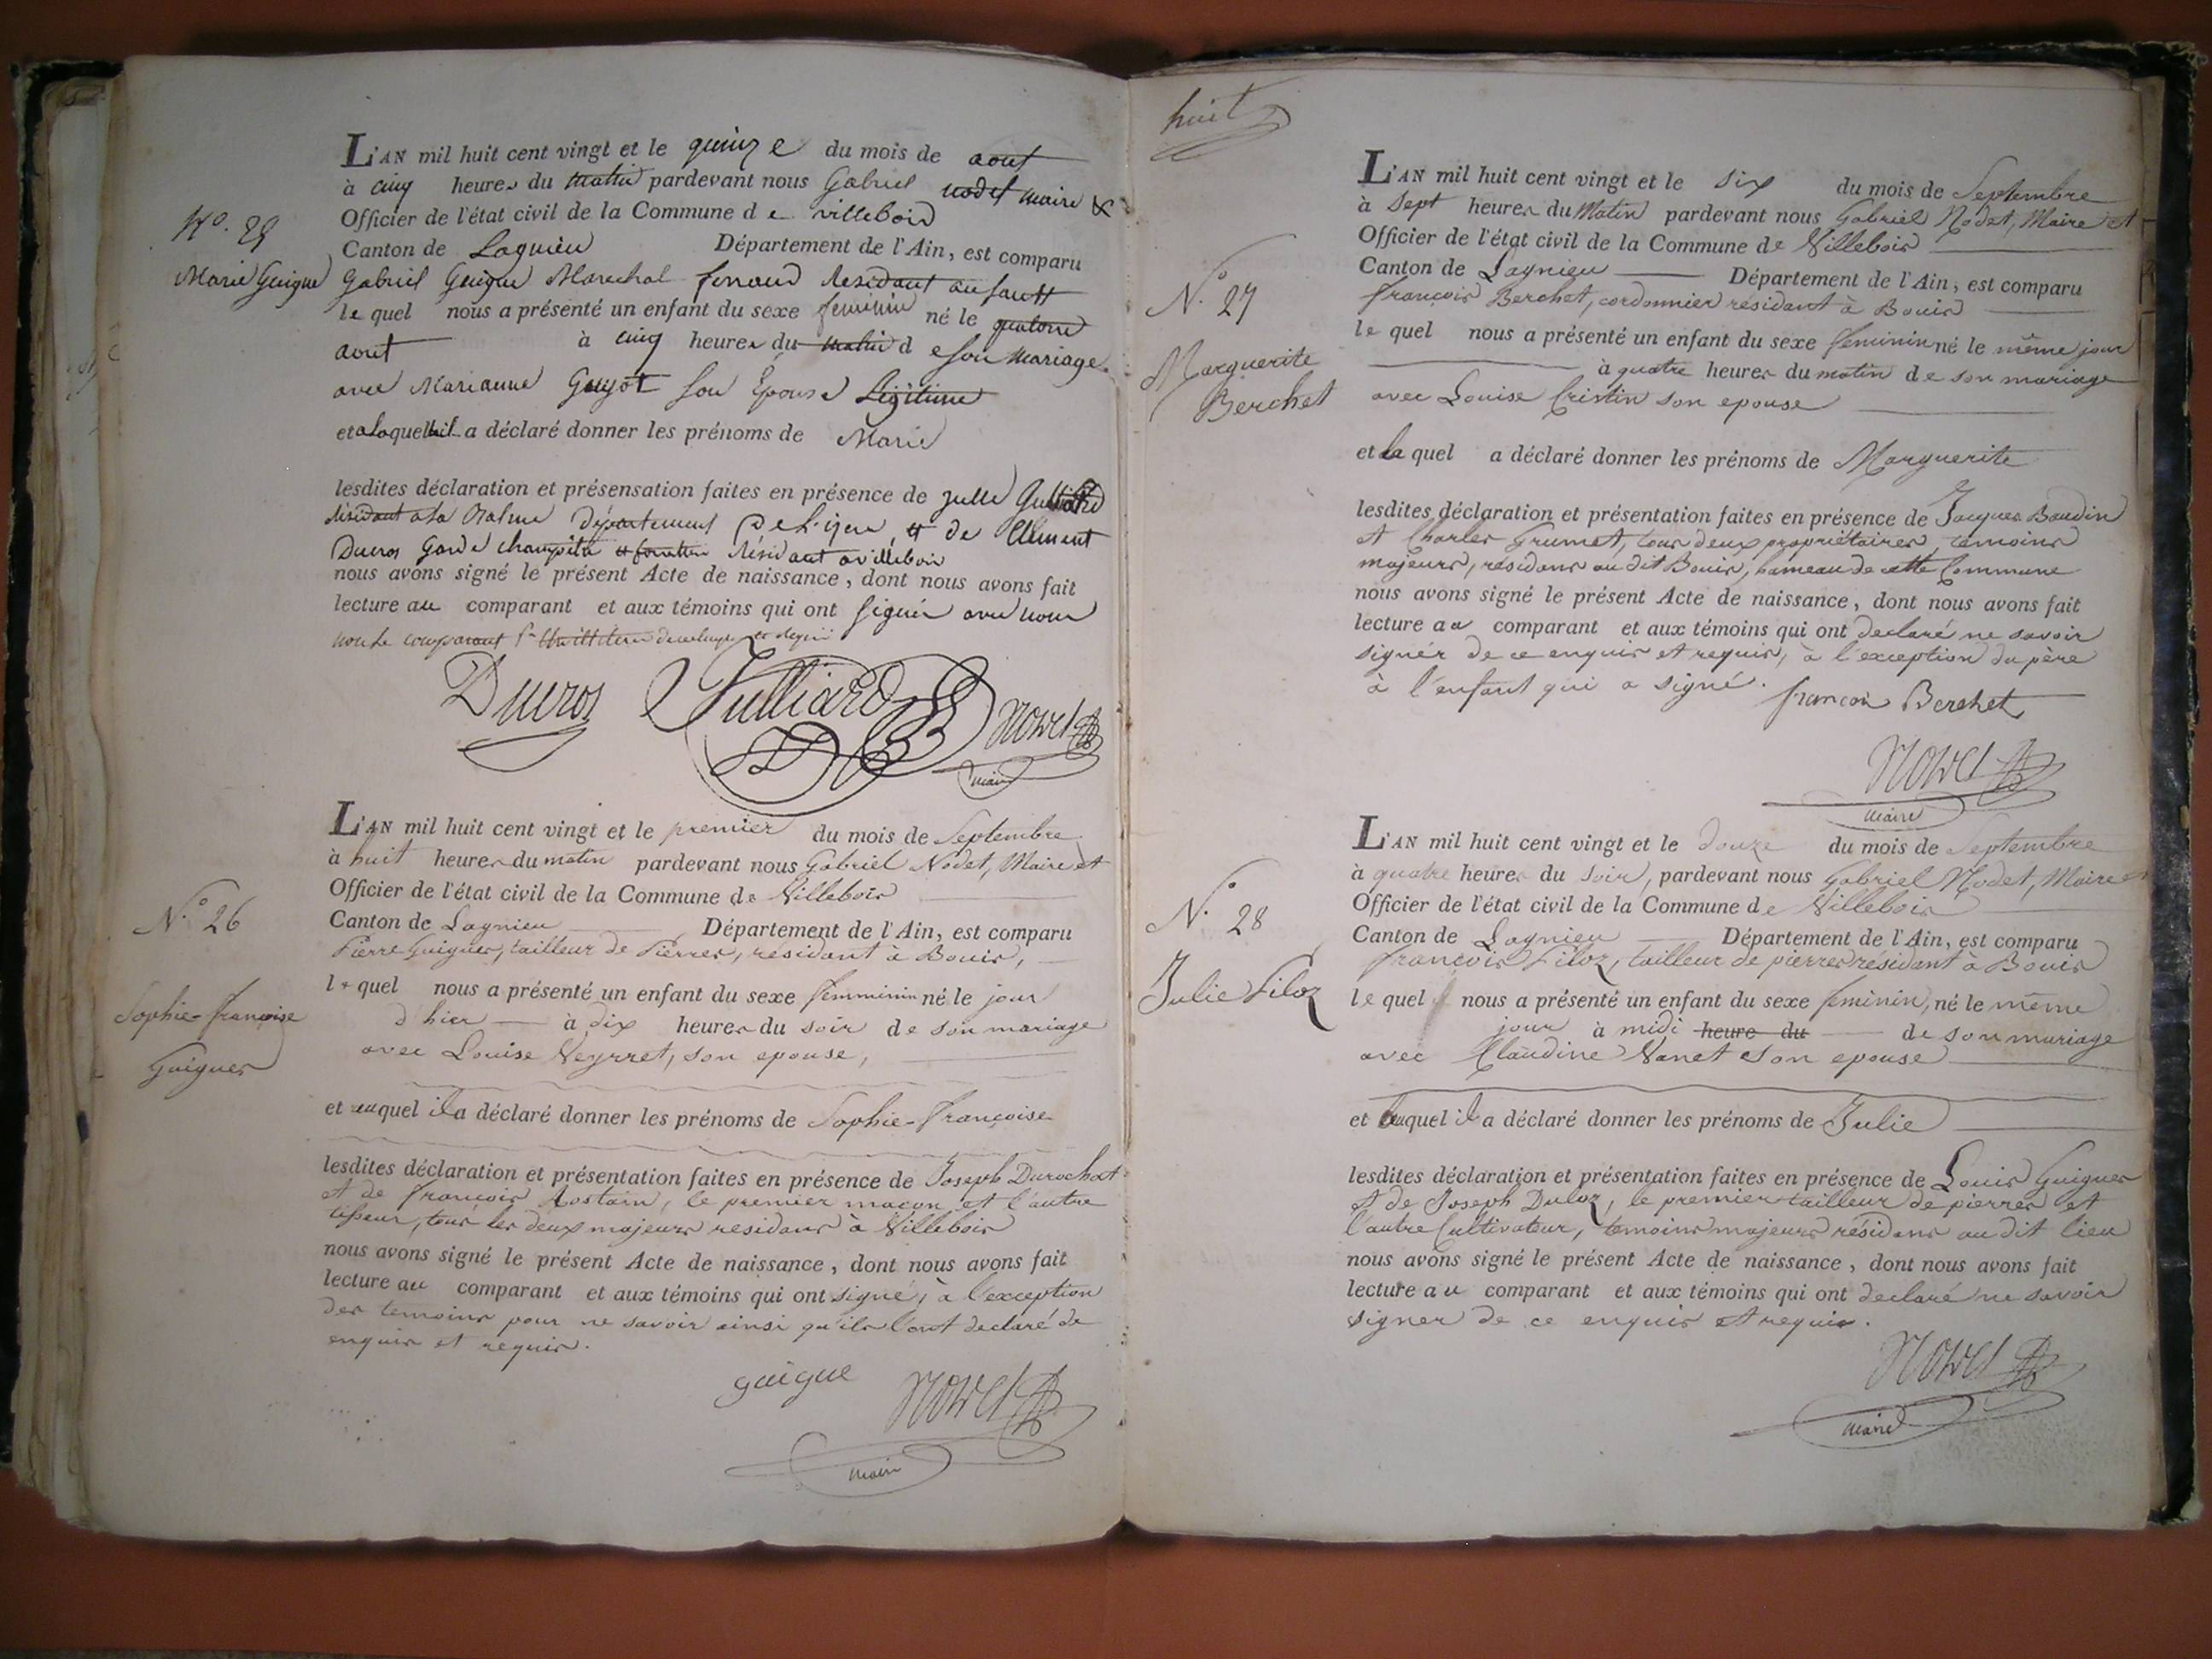 L'AN mil huit cent vingt et le quinze du mois de aout
à cinq heures du matin pardevant nous Gabriel nodet maire &
Officier de l'état civil de la Commune de villebois
N.o 25
Canton de Lagnieu Département de l'Ain, est comparu
Marie Guigue
Gabriel Guigue Marechal ferrand Residant au sault
le quel nous a présenté un enfant du sexe feminin né le quatorze
aout à cinq heures du matin de son mariage
avec Marianne Guyot son Epouse Légitime
et a laquelle il a déclaré donner les prénoms de Marie
lesdites déclaration et présensation faites en présence de Julliard
résidant a la Balme département de l'isere, et de Clément
Ducros Garde champêtre et forestier résidant a villebois
nous avons signé le présent Acte de naissance, dont nous avons fait
lecture au comparant et aux témoins qui ont signés avec nous
non le comparant
Ducros Julliard Nodet
maire
L'AN mil huit cent vingt et le premier du mois de Septembre
à huit heures du matin pardevant nous Gabriel Nodet, Maire et
Officier de l'état civil de la Commune de Villebois
N.o 26
Canton de Lagnieu Département de l'Ain, est comparu
Pierre Guigues, tailleur de Pierres, résidant à Bouis,
Sophie-françoise
Guigues
le quel nous a présenté un enfant du sexe femminin né le jour
d'hier à dix heures du soir de son mariage
avec Louise Veyrret, son epouse,
et auquel il a déclaré donner les prénoms de Sophie-françoise
lesdites déclaration et présentation faites en présence de Joseph Durochat
et de françois Rostain, le premier maçon et l'autre
tisseur, tous les deux majeurs residans à Villebois
nous avons signé le présent Acte de naissance, dont nous avons fait
lecture au comparant et aux témoins qui ont signé, à l'exception
des temoins pour ne savoir ainsi qu'ils l'ont declaré de
enquis et requis.
guigue Nodet
maire
huit
L'AN mil huit cent vingt et le six du mois de Septembre
à Sept heures du Matin pardevant nous Gabriel Nodet, Maire et
Officier de l'état civil de la Commune de Villebois
N.o 27
Canton de Lagnieu Département de l'Ain, est comparu
françois Berchet, cordonnier résidant à Bouis
Marguerite
Berchet
le quel nous a présenté un enfant du sexe feminin né le même jour
à quatre heures du matin de son mariage
avec Louise Cristin son epouse
et la quel a déclaré donner les prénoms de Marguerite
lesdites déclaration et présentation faites en présence de Jacques Baudin
et Charles Grumet, tous deux propriétaires, temoins
majeurs, résidans au dit Bouis, hameau de cette Commune
nous avons signé le présent Acte de naissance, dont nous avons fait
lecture au comparant et aux témoins qui ont declaré ne savoir
signer de ce enquis et requis, à l'exception du père
à l'enfant qui a signé. françois Berchet
Nodet
maire
L'AN mil huit cent vingt et le Douze du mois de Septembre
à quatre heures du soir, pardevant nous Gabriel Nodet, Maire et
Officier de l'état civil de la Commune de Villebois
N.o 28
Canton de Lagnieu Département de l'Ain, est comparu
françois Filoz, tailleur de pierres résidant à Bouis
Julie Filoz
le quel nous a présenté un enfant du sexe feminin, né le même
jour à midi heure du de son mariage
avec Claudine Vanet son epouse
et auquel il a déclaré donner les prénoms de Julie
lesdites déclaration et présentation faites en présence de Louis Guigues
et de Joseph Duloz, le premier tailleur de pierres et
l'autre Cultivateur, temoins majeurs résidans au dit lieu
nous avons signé le présent Acte de naissance, dont nous avons fait
lecture au comparant et aux témoins qui ont declaré ne savoir
signer de ce enquis et requis.
Nodet
maire